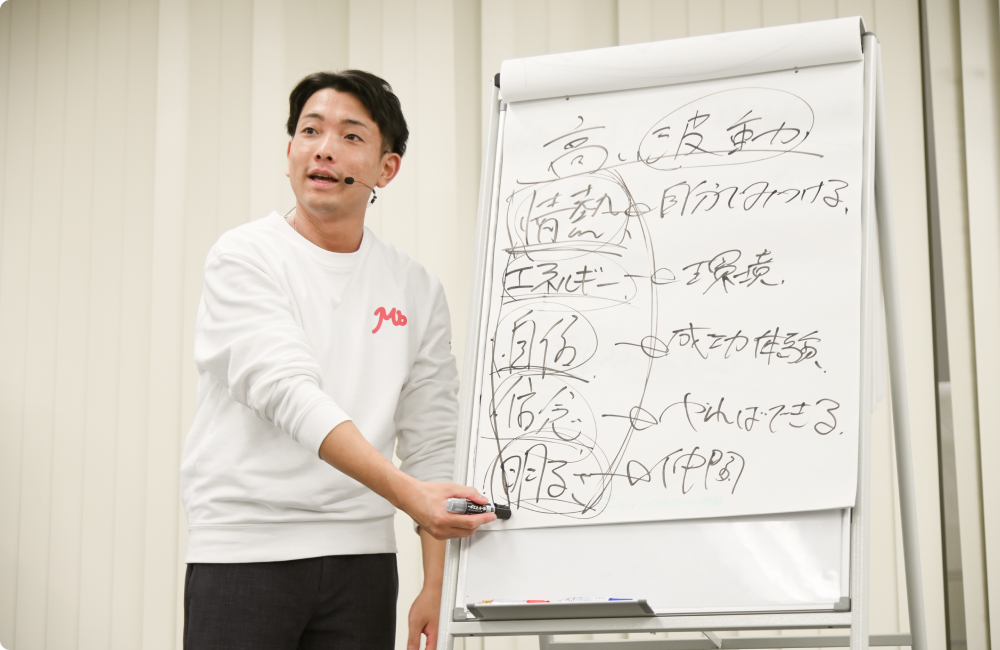 Mb
高い波動力
情熱 → 自分でみつける.
エネルギー → 環境.
自信 → 成功体験.
信念 → やればできる.
明るさ → 仲間